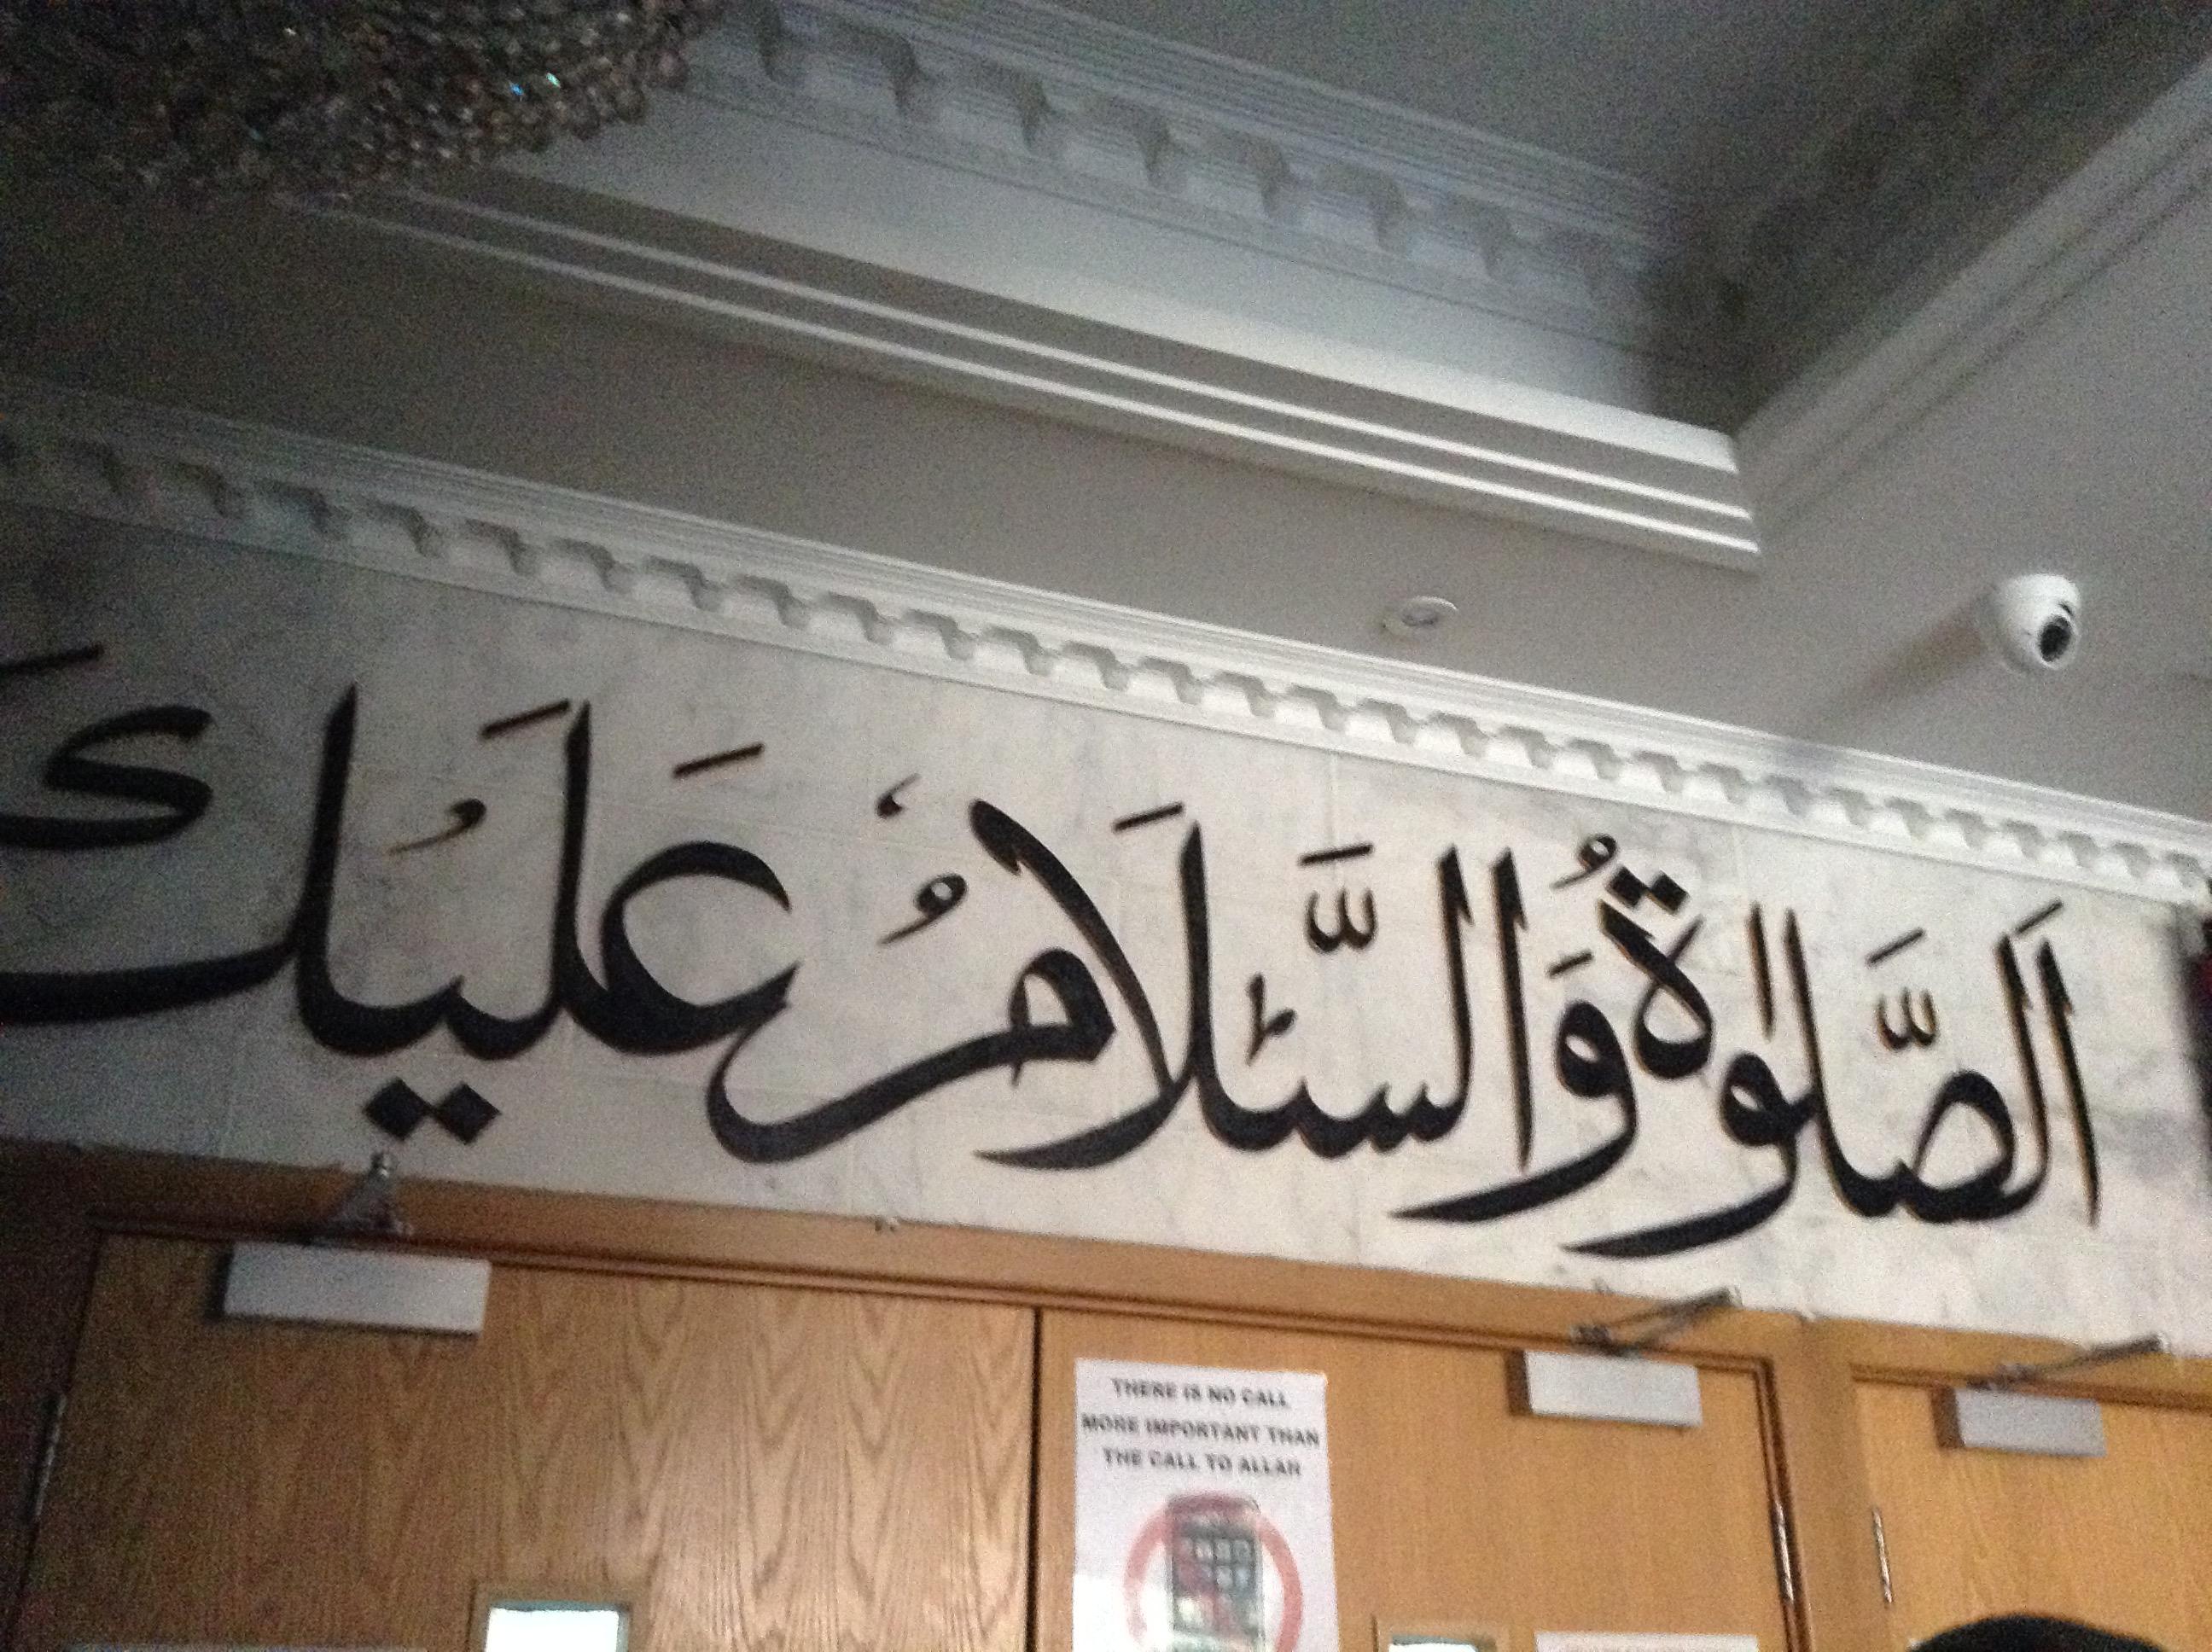 اَلصَّلوٰةُ وَالسَّلَامُ عَلَيْكَ
THERE IS NO CALL
MORE IMPORTANT THAN
THE CALL TO ALLAH